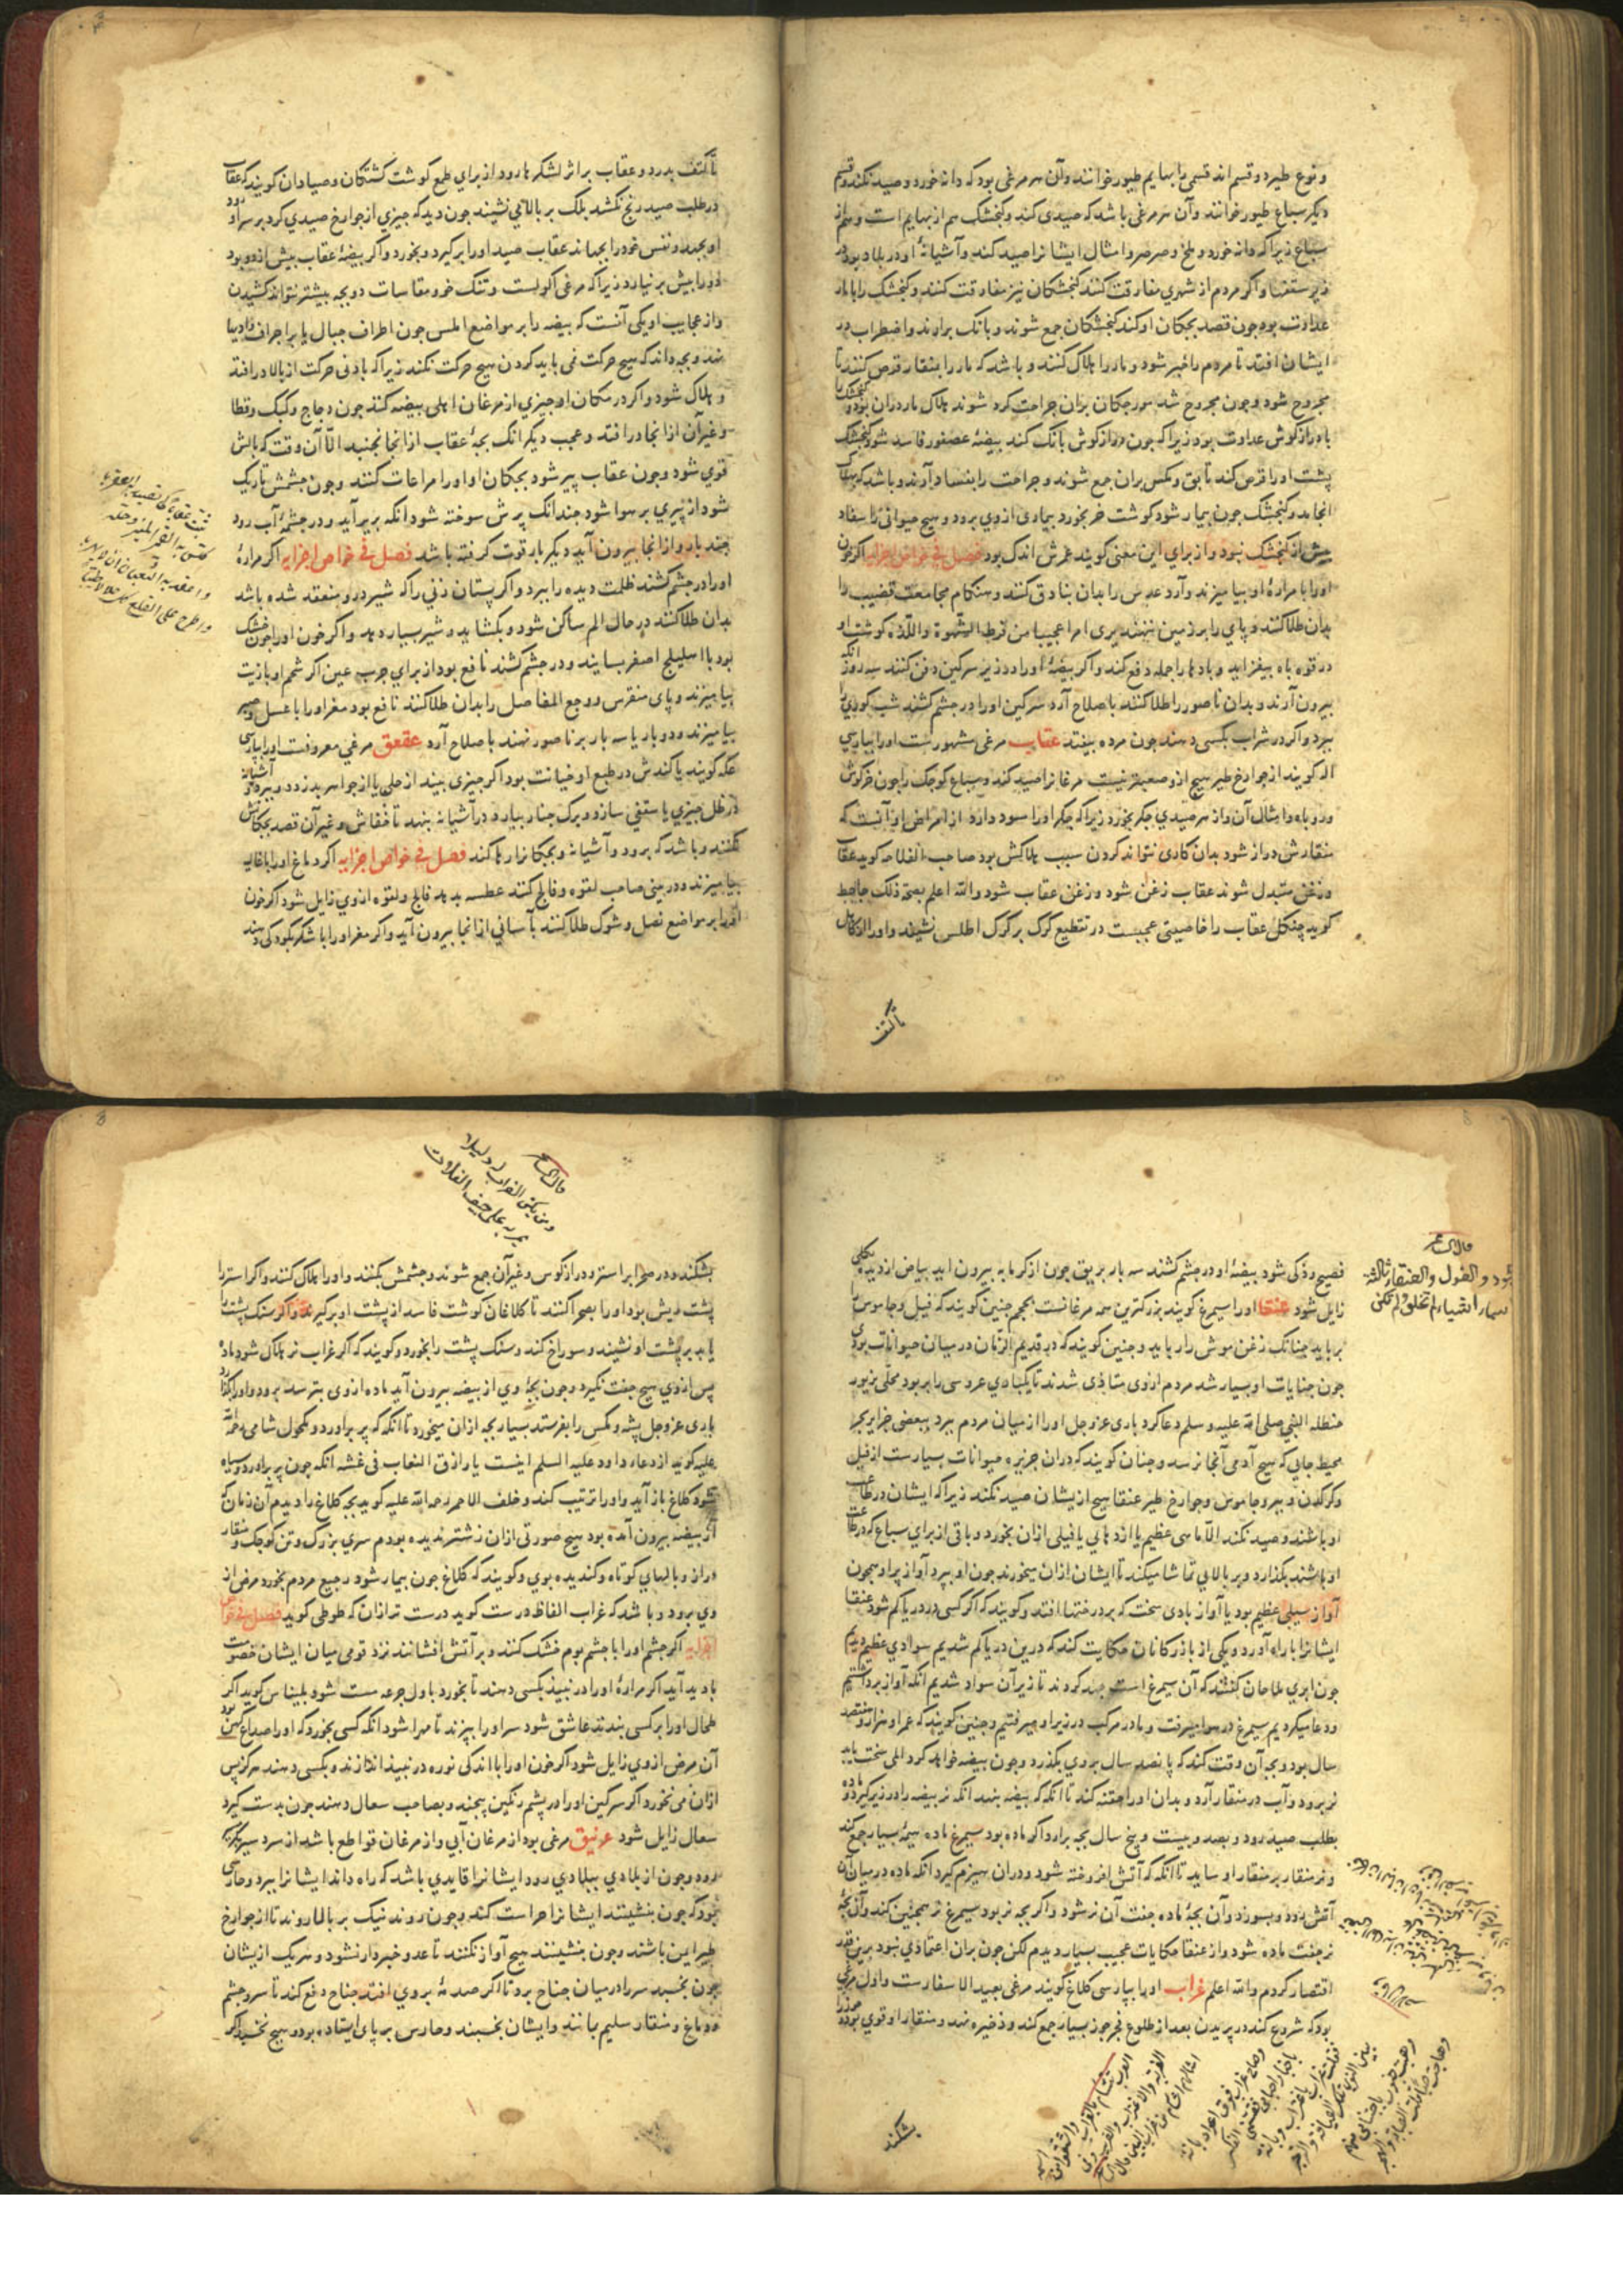 و نوع طیر دو قسم اند قسمی را بهایم طیور خوانند و آن هر مرغی بود که دانه خورد و صید نکند و قسم
دیکر سباع طیور خوانند و آن هر مرغی باشد که صیدی کند و کنجشک هم از بهایم است و هم از
سباع زیرا که دانه خورد و ملخ و صرصر و امثال ایشانرا صید کند و آشیانهٔ او در بلاد بود در
زیر سقفها و اکر مردم از شهری مفارقت کنند کنجشکان نیز مفارقت کنند و کنجشک را با مار
عداوت بود چون قصد بجکان او کند کنجشکان جمع شوند و بانک برارند و اضطراب در
ایشان افتد تا مردم را خبر شود و مار را هلاک کنند و باشد که مار را بمنقار قرص کنند تا
مجروح شود و چون مجروح شد مورجکان بران جراحت کرد شوند هلاک مار دران بود و کنجشک را
با درازکوش عداوت بود زیرا که چون درازکوش بانک کند بیضهٔ عصفور فاسد شود کنجشک
پشت او را قرص کند تا بق و مکس بران جمع شوند و جراحت را بفساد آورند و باشد که بهلاک
انجامد و کنجشک چون بیمار شود کوشت خر بخورد بیماری از وی برود و هیچ حیوانی را سفاد
بیش از کنجشک نبود و از برای این معنی کویند عمرش اندک بود فصل فی خواص اجزایه اکر خون
او را با مرارهٔ او بیامیزند و آرد عدس را بدان بنادق کنند و هنکام مجامعت قضیب را
بدان طلا کنند و پای را بر زمین ننهند یری امرا عجیبا من فرط الشهوة و اللذة کوشت او
در قوه باه بیفزاید و بادها را جمله دفع کند و اکر بیضهٔ او را در زیر سرکین دفن کنند سه روز آنکه
بیرون آرند و بدان ناصور را طلا کنند باصلاح آرد سرکین او را در چشم کشند شب کوری را
ببرد و اکر در شراب بکسی دهند چون مرده بیفتد عقاب مرغی مشهورست او را بپارسی
اله کویند از جوارح طیر هیچ ازو صعبتر نیست مرغانرا صید کند و سباع کوجک را چون خرکوش
و روباه و امثال آن و از هر صیدی جکر بخورد زیرا که جکر او را سود دارد از امراض او آنست که
منقارش دراز شود بدان کاری نتواند کردن سبب هلاکش بود صاحب الفلاحه کوید عقاب
و زغن متبدل شوند عقاب زغن شود و زغن عقاب شود والله اعلم بصحة ذلک جاحظ
کوید چنکل عقاب را خاصیتی عجیبست در تقطیع کرک بر کرک اطلس نشیند و او را از کاهل
تا کتف
تا کتف بدرد و عقاب بر اثر لشکرها رود از برای طمع کوشت کشتکان و صیادان کویند که عقاب
در طلب صید رنج نکشد بلک بر بالائی نشیند چون دید که جیزی از جوارح صیدی کرد بر سر او رود
او بجهد و نفس خود را بجهاند عقاب صید او را برکیرد و بخورد و اکر بیضهٔ عقاب بیش از دو بود
دو را بیش بر نیارد زیرا که مرغی اکولست و تنک خو و مقاسات دو بچه بیشتر نتواند کشیدن
و از عجایب او یکی آنست که بیضه را بر مواضع املس چون اطراف جبال یا بر اجراف وادیها
نهد و بچه داند که هیچ حرکت نمی باید کردن هیچ حرکت نکند زیرا که بادنی حرکت از بالا در افتد
و هلاک شود و اکر در مکان او جیزی از مرغان اهلی بیضه کند چون دجاج و کبک و قطا
و غیر آن از انجا در افتد و عجب دیکر انک بچهٔ عقاب از انجا نجنبد الا آن وقت که بالش
قوی شود و چون عقاب پیر شود بجکان او او را مراعات کنند و چون چشمش تاریک
شود از پیری بر هوا شود چندانک پرش سوخته شود انکه بزیر آید و در چشمهٔ آب رود
چند بار و از انجا بیرون آید دیکر بار قوت کرفته باشد فصل فی خواص اجزایه اکر مرارهٔ
او را در چشم کشند ظلمت دیده را ببرد و اکر پستان زنی را که شیر درو منعقد شده باشد
بدان طلا کنند در حال الم ساکن شود و بکشاید و شیر بسیار دهد و اکر خون او را چون خشک
بود با اهلیلج اصفر بسایند و در چشم کشند نافع بود از برای جرب عین اکر شحم او با زیت
بیامیزند و پای منقرس و وجع المفاصل را بدان طلا کنند نافع بود مغز او را با عسل و صبر
بیامیزند و دو بار یا سه بار بر ناصور نهند باصلاح آرد عقعق مرغی معروفست او را بپارسی
عکه کویند پاکندش در طبع او خیانت بود اکر جیزی بیند از حلی یا از جواهر بدزدد و ببرد و آشیانه
در ظل جیزی یا سقفی سازد و برک چنار بیارد و در آشیانه بنهد تا خفاش و غیر آن قصد بجکانش
نکنند و باشد که برود و آشیانه و بچکانرا رها کند فصل فی خواص اجزایه اکر دماغ او را با غالیه
بیامیزند و در بینی صاحب لقوه و فالج کنند عطسه بدهد فالج و لقوه از وی زایل شود اکر خون
او را بر مواضع نصل و شوک طلا کنند بآسانی از انجا بیرون آید و اکر مغز او را با شکر بکودکی دهند
فصیح و ذکی شود بیضهٔ او در چشم کشند سه بار بریق چون از کرمابه بیرون اید بیاض از دیده بکلی
زایل شود عنقا او را سیمرغ کویند بزرکترین همه مرغانست بحجم چنین کویند که فیل و جاموس را
برباید چنانک زغن موش را رباید و چنین کویند که در قدیم الزمان در میان حیوانات بودی
چون جنایات او بسیار شد مردم از وی متأذی شدند تا یکباری عروسی را بر بود محلی بزیور
حنظله النبی صلی الله علیه و سلم دعا کرد باری عز و جل او را از میان مردم ببرد ببعضی جزایر بحر
محیط جایی که هیچ آدمی آنجا نرسد و چنان کویند که دران جزیره حیوانات بسیارست از فیل
و کرکدن و ببر و جاموس و جوارح طیر عنقا هیچ ازیشان صید نکند زیرا که ایشان در طاعت
او باشند و صید نکند الا ماهی عظیم یا اژدهایی یا فیلی ازان بخورد و باقی از برای سباع که در طاعت
او باشند بکذارد و بر بالایی تماشا میکند تا ایشان ازان میخورند چون او بپرد آواز پر او همچون
آواز سیلی عظیم بود یا آواز بادی سخت که بر درختها افتد و کویند که اکر کسی در دریا کم شود عنقا
ایشانرا با راه آورد و یکی از بازرکانان حکایت کند که درین دریا کم شدیم سوادی عظیم دیدیم
چون ابری ملاحان کفتند که آن سیمرغ است جهد کردند تا زیر آن سواد شدیم انکه آواز برداشتیم
و دعا میکردیم سیمرغ در هوا میرفت و ما در مرکب در زیر او میرفتیم و چنین کویند که عمر او هزار و هفتصد
سال بود و بچه آن وقت کند که پانصد سال بر وی بکذرد و چون بیضه خواهد کرد المی سخت یابد
نر برود و آب در منقار آرد و بدان او را حقنه کند تا انکه که بیضه بنهد انکه نر بیضه را در زیر کیرد و ماده
بطلب صید رود و بصد و بیست و پنج سال بچه برارد اکر ماده بود سیمرغ ماده هیمهٔ بسیار جمع کند
و نر منقار بر منقار او ساید تا انکه که آتش افروخته شود و دران هیزم کیرد انکه ماده در میان آن
آتش رود و بسوزد و آن بچهٔ ماده جفت آن نر شود و اکر بچه نر بود سیمرغ نر همچنین کند و آن بچهٔ
نر جفت ماده شود و از عنقا حکایات عجیب بسیار دیدم لکن چون بران اعتمادی نبود برین قدر
اقتصار کردم والله اعلم غراب او را بپارسی کلاغ کویند مرغی بعید الاسفارست و اول مرغی
بود که شروع کند در پریدن بعد از طلوع فجر جوز بسیار جمع کند و ذخیره نهد و منقار او قوی بود و جوز را
بشکند
قال الشاعر
الجود و الغول و العنقاء ثالثة
اسماء اشیاء لم تخلق و لم تکن
بشکند و در صحرا بر استر و درازکوش و غیر آن جمع شوند و چشمش بکنند و او را هلاک کنند و اکر استر را
پشت ریش بود او را بصحرا کنند تا کلاغان کوشت فاسد از پشت او برکیرند و اکر سنک پشت را
یابد بر پشت او نشیند و سوراخ کند و سنک پشت را بخورد و کویند که اکر غراب نر هلاک شود ماده
پس از وی هیچ جفت نکیرد و چون بچهٔ وی از بیضه بیرون آید ماده از وی بترسد برود و او را بکذارد
باری عز و جل پشه و مکس را بفرستد بسیار بچه ازان میخورد تا انکه که پر براورد و مکحول شامی رحمة الله
علیه کوید از دعاء داود علیه السلم اینست یا رازق النعاب فی عشه انکه چون پر براورد و سیاه
شود کلاغ باز آید و او را تربیت کند و خلف الاحمر رحمه الله علیه کوید بچه کلاغ را دیدم آن زمان که
از بیضه بیرون آمده بود هیچ صورتی ازان زشتتر ندیده بودم سری بزرک و تن کوجک و منقار
دراز و بالهای کوتاه و کندیده بوی و کویند که کلاغ چون بیمار شود رجیع مردم بخورد مرض از
وی برود و باشد که غراب الفاظ درست کوید درست تر ازان که طوطی کوید فصل فی خواص
اجزایه اکر چشم او را با چشم بوم خشک کنند و بر آتش افشانند نزد قومی میان ایشان خصومت
بادید آید اکر مرارهٔ او را در نبیذ بکسی دهند تا بخورد باول جرعه مست شود بلیناس کوید اکر
طحال او را بر کسی بندند عاشق شود سر او را بپزند تا مهرا شود انکه کسی بخورد که او را صداع کهن بود
آن مرض از وی زایل شود اکر خون او را با اندکی نوره در نبیذ اندازند و بکسی دهند هرکز پس
ازان می نخورد اکر سرکین او را در پشم رنکین پیچند و بصاحب سعال دهند چون بدست کیرد
سعال زایل شود غرنیق مرغی بود از مرغان آبی و از مرغان قواطع باشد از سردسیر بکرمسیر
رود و چون از بلادی ببلادی رود ایشانرا قایدی باشد که راه داند ایشانرا ببرد و حارسی
بود که چون بنشینند ایشانرا حراست کند و چون روند نیک بر بالا روند تا از جوارح
طیر ایمن باشند و چون بنشینند هیچ آواز نکنند تا عدو خبردار نشود و هر یک ازیشان
چون بخسبد سر را در میان جناح برد تا اکر صدمهٔ بر وی افتد جناح دفع کند تا سر و چشم
و دماغ و منقار سلیم بمانند و ایشان بخسبند و حارس بر پای ایستاده بود و هیچ نخسبد اکر
قال الشاعر
و من یکن الغراب له دلیلا
یمر به علی جیف الفلات